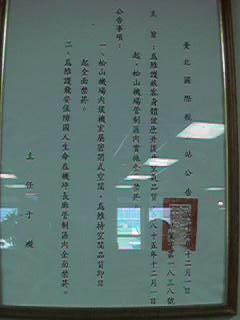 臺北國際航　站公告
十二月一日
一八三八號
主旨：為維護旅客身體健康并提　　　品質，　八十五年十二月一日
起，松山機場管制區內實施全　禁菸。
公告事項：
一、松山機場內候機室屬密閉式空間，為維持空間品質即日
起全面禁菸。
二、為維護飛安保障國人生命在機坪長廊管制區內全面禁菸。
主任于璇